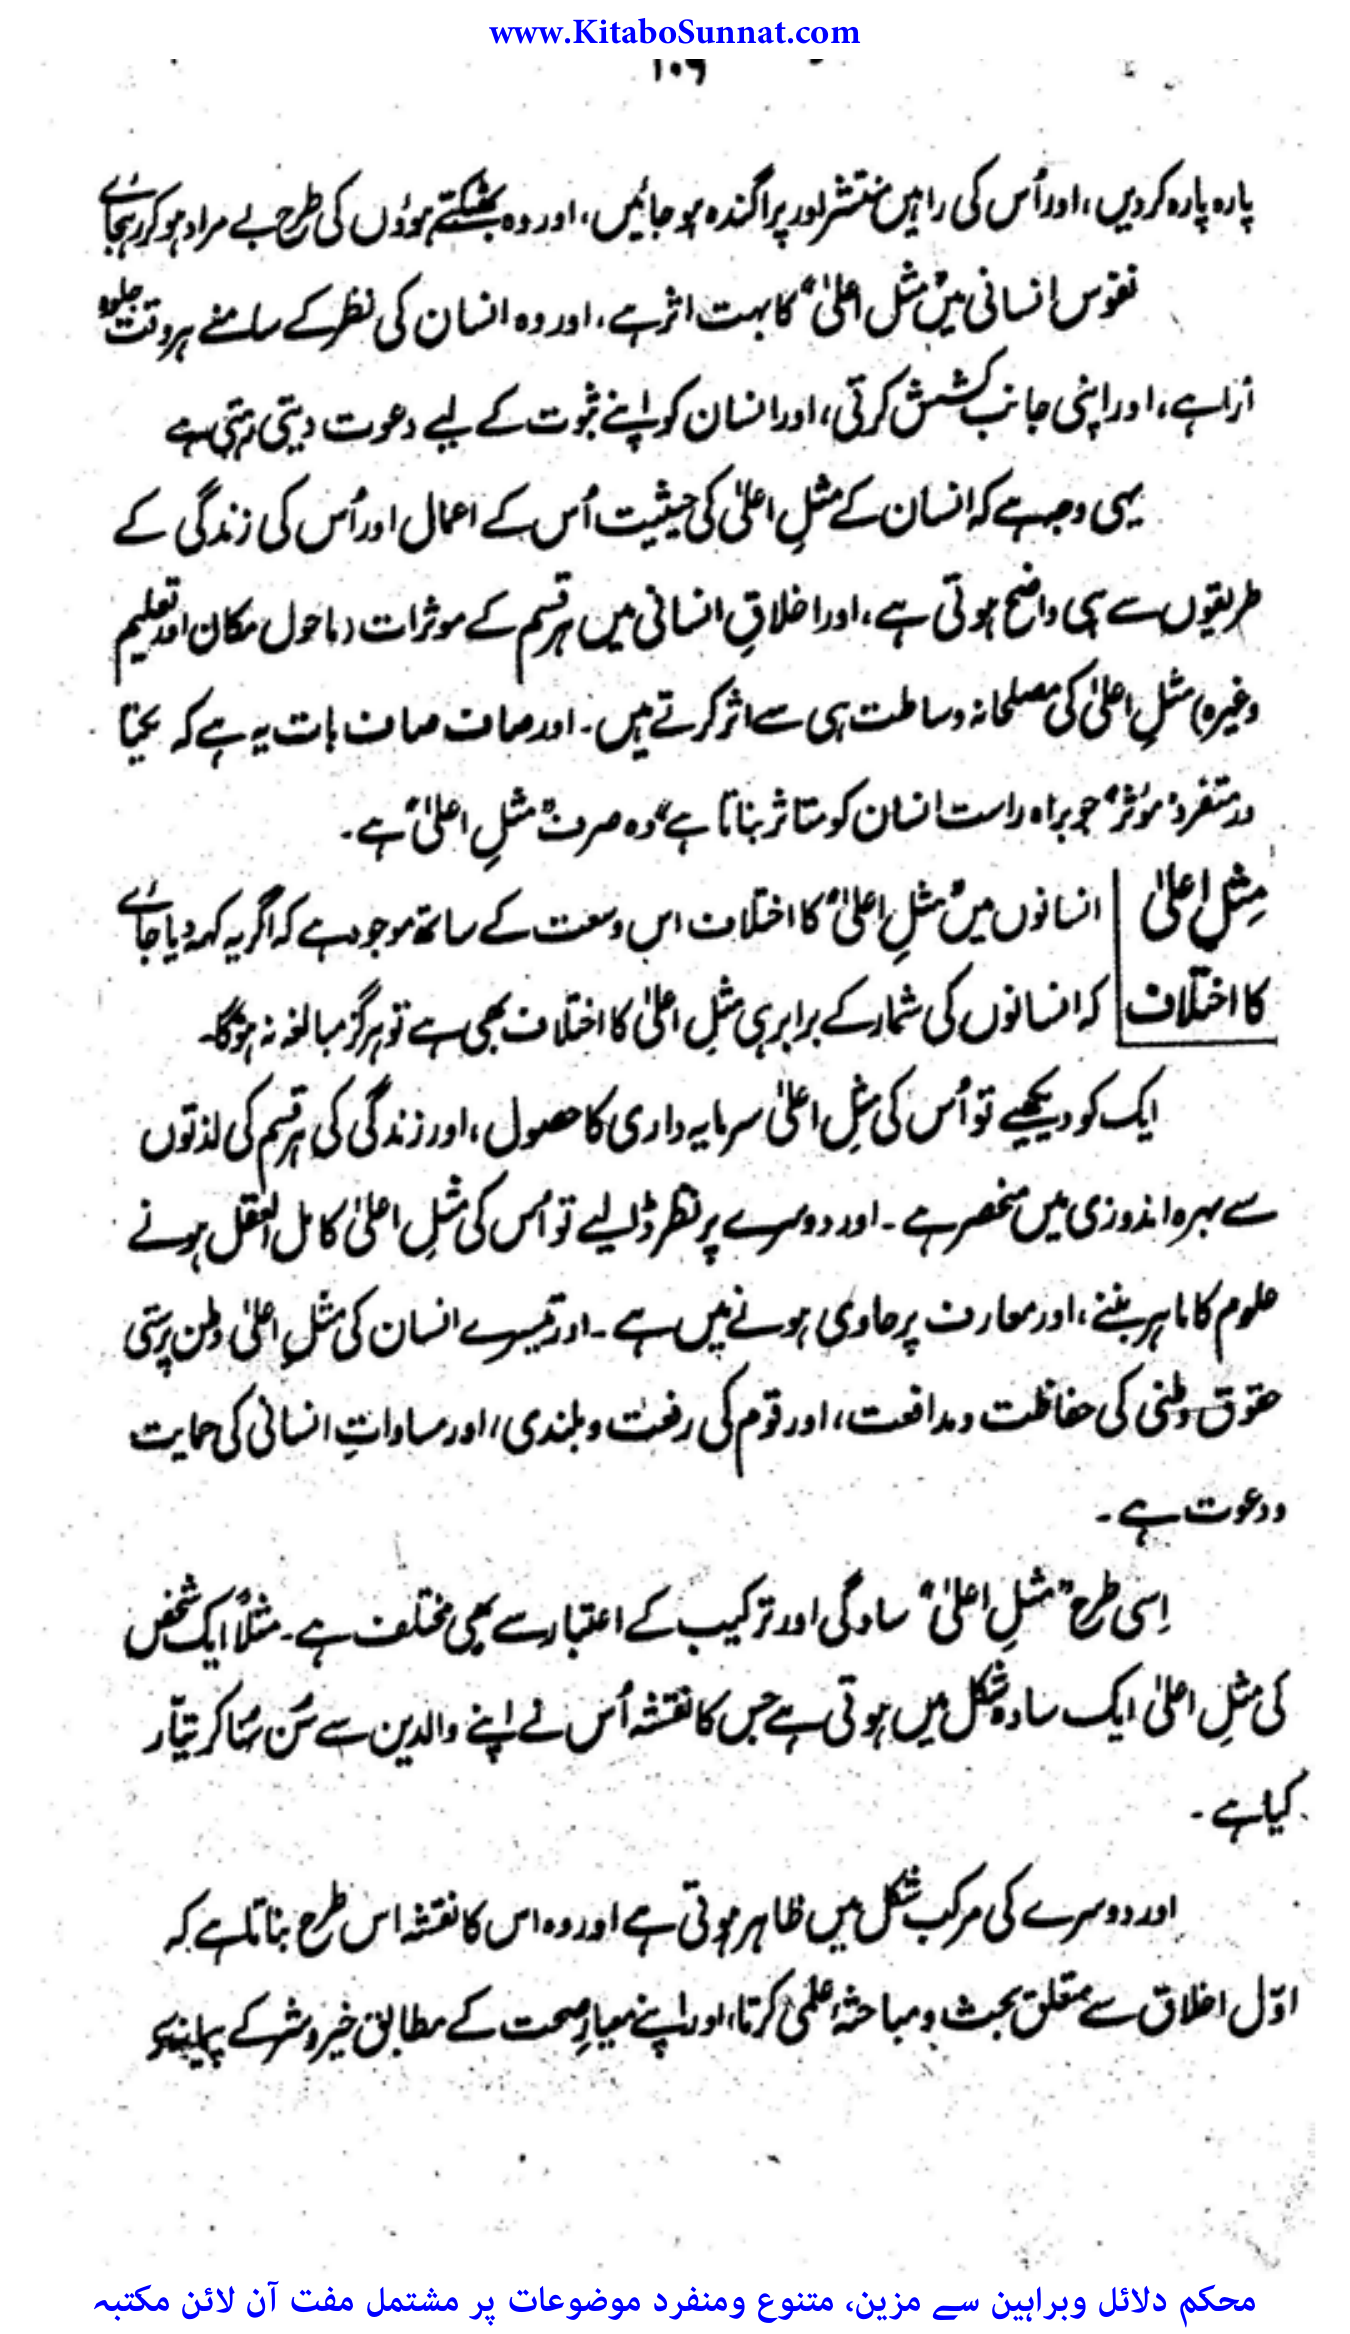 www.KitaboSunnat.com
۱۰۶
پارہ پارہ کردیں، اور اُس کی راہیں منتشر اور پراگندہ ہو جائیں، اور وہ بھٹکتے ہوؤں کی طرح بے مراد ہو کر رہجائے
نفوس انسانی میں "مثل اعلیٰ" کا بہت اثر ہے، اور وہ انسان کی نظر کے سامنے ہر وقت جلوہ
آرا ہے، اور اپنی جانب کشش کرتی، اور انسان کو اپنے ثبوت کے لیے دعوت دیتی رہتی ہے
یہی وجہ ہے کہ انسان کے مثلِ اعلیٰ کی حیثیت اُس کے اعمال اور اُس کی زندگی کے
طریقوں سے ہی واضح ہوتی ہے، اور اخلاقِ انسانی میں ہر قسم کے موثرات (ماحول مکان اور تعلیم
وغیرہ) مثلِ اعلیٰ کی مصلحانہ وساطت ہی سے اثر کرتے ہیں۔ اور صاف صاف بات یہ ہے کہ یختا
در متفرد "موثر" جو براہ راست انسان کو متاثر بناتا ہے "وہ صرف "مثلِ اعلیٰ" ہے۔
مِثلِ اعلیٰ انسانوں میں "مثلِ اعلیٰ" کا اختلاف اس وسعت کے ساتھ موجود ہے کہ اگر یہ کہہ دیا جائے
کا اختلاف کہ انسانوں کی شمار کے برابر ہی مثلِ اعلیٰ کا اختلاف بھی ہے تو ہرگز مبالغہ نہ ہوگا۔
ایک کو دیکھیے تو اُس کی مثلِ اعلیٰ سرمایہ داری کا حصول، اور زندگی کی ہر قسم کی لذتوں
سے بہرہ اندوزی میں منحصر ہے۔ اور دوسرے پر نظر ڈالیے تو اُس کی مثلِ اعلیٰ کامل العقل ہونے
علوم کا ماہر بننے، اور معارف پر حاوی ہونے میں ہے۔ اور تیسرے انسان کی مثلِ اعلیٰ وطن پرستی
حقوق وطنی کی حفاظت و مدافعت، اور قوم کی رفعت و بلندی، اور مساواتِ انسانی کی حمایت
و دعوت ہے۔
اِسی طرح "مثلِ اعلیٰ" سادگی اور ترکیب کے اعتبار سے بھی مختلف ہے۔ مثلاً ایک شخص
کی مثلِ اعلیٰ ایک سادہ شکل میں ہوتی ہے جس کا نقشہ اُس نے اپنے والدین سے سُن سُنا کر تیّار
کیا ہے۔
اور دوسرے کی مرکب شکل میں ظاہر ہوتی ہے اور وہ اس کا نقشہ اس طرح بناتا ہے کہ
اوّل اخلاق سے متعلق بحث و مباحثۂ علمی کرتا، اور اپنے معیارِ صحت کے مطابق خیر و شر کے
محکم دلائل وبراہین سے مزین، متنوع ومنفرد موضوعات پر مشتمل مفت آن لائن مکتبہ